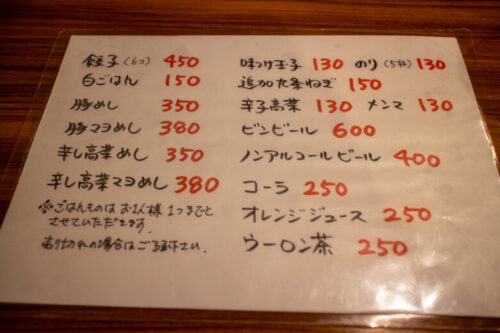 餃子(6コ) 450
白ごはん 150
豚めし 350
豚マヨめし 380
辛し高菜めし 350
辛し高菜マヨめし 380
※ごはんものはお1人様1つまでと
させていただきます。
売り切れの場合はご了承下さい。
味つけ玉子 130 のり(5枚) 130
追加九条ねぎ 150
辛子高菜 130 メンマ 130
ビンビール 600
ノンアルコールビール 400
コーラ 250
オレンジジュース 250
ウーロン茶 250